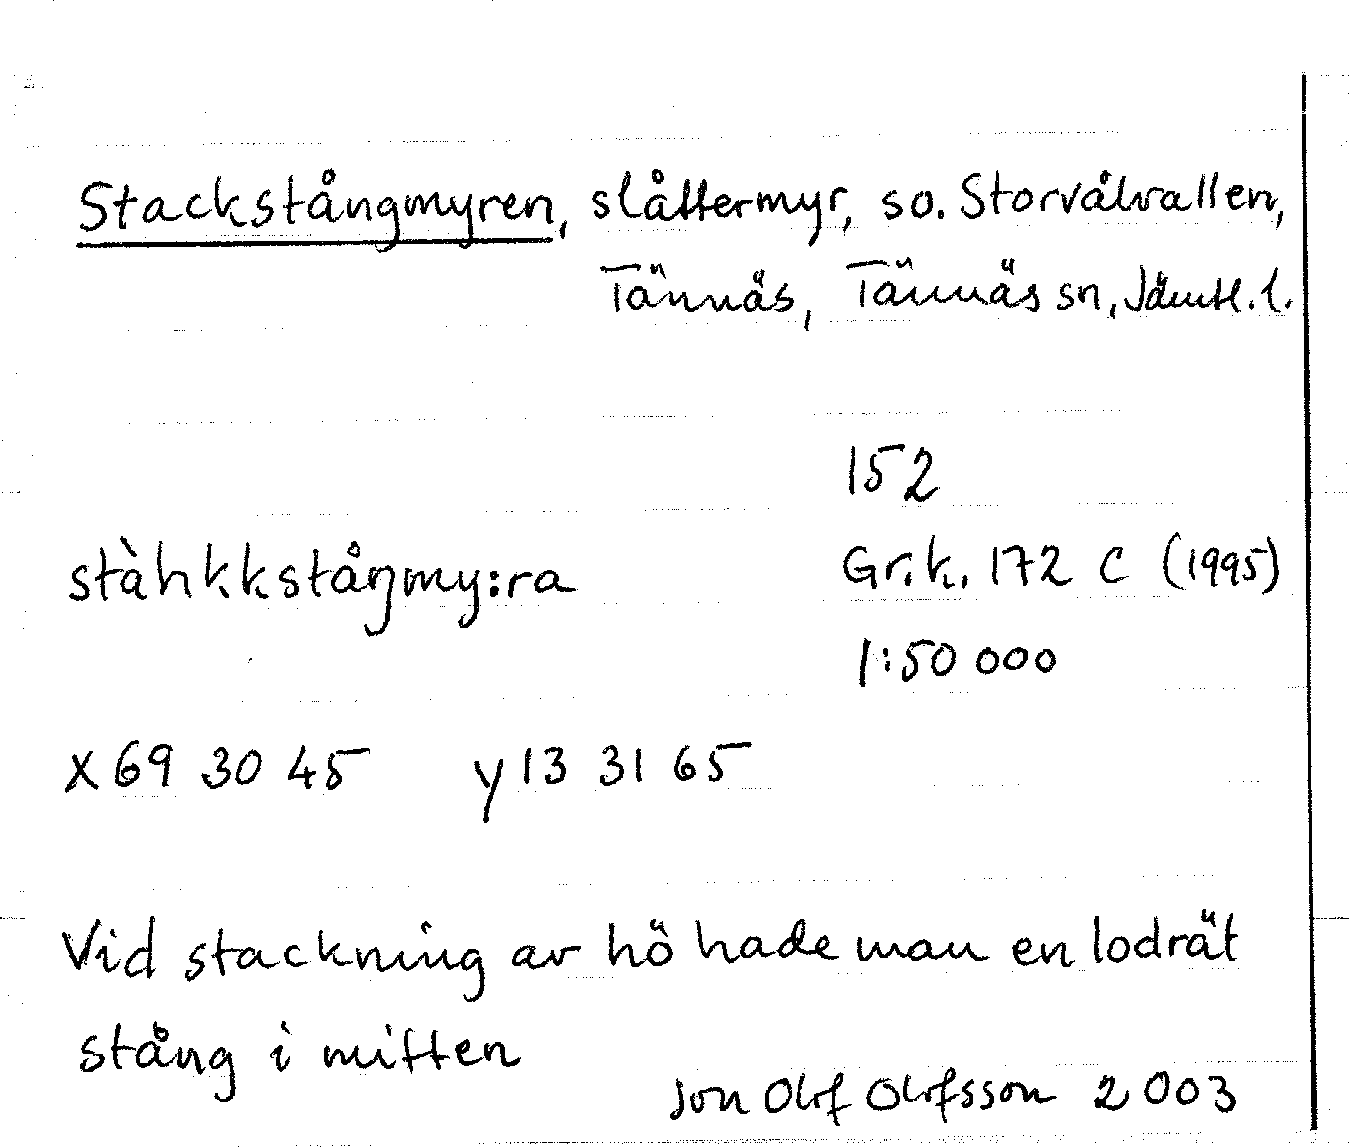 Stackstångmyren, slåttermyr, so. Storvålvallen,
Tännäs, Tännäs sn, Jämtl. l.
152
ståhkkståŋmy:ra
Gr.k. 172 C (1995)
1:50 000
x 69 30 45 y 13 31 65
Vid stackning av hö hade man en lodrät
stång i mitten
Jon Olof Olofsson 2003